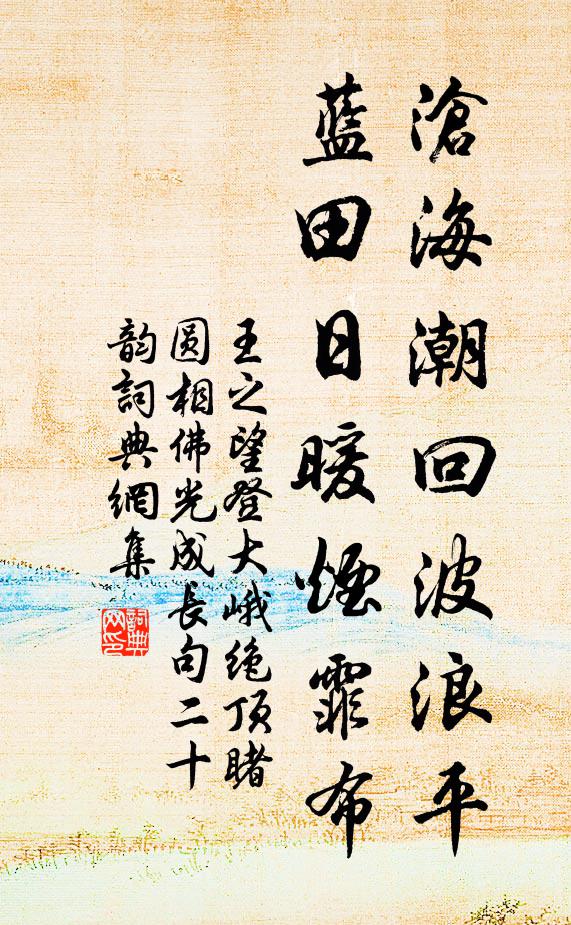 滄海潮回波浪平
藍田日暖煙霏布
王之望登大峨絶頂睹
圓相佛光成長句二十
韵詞典網集
詞典
网印